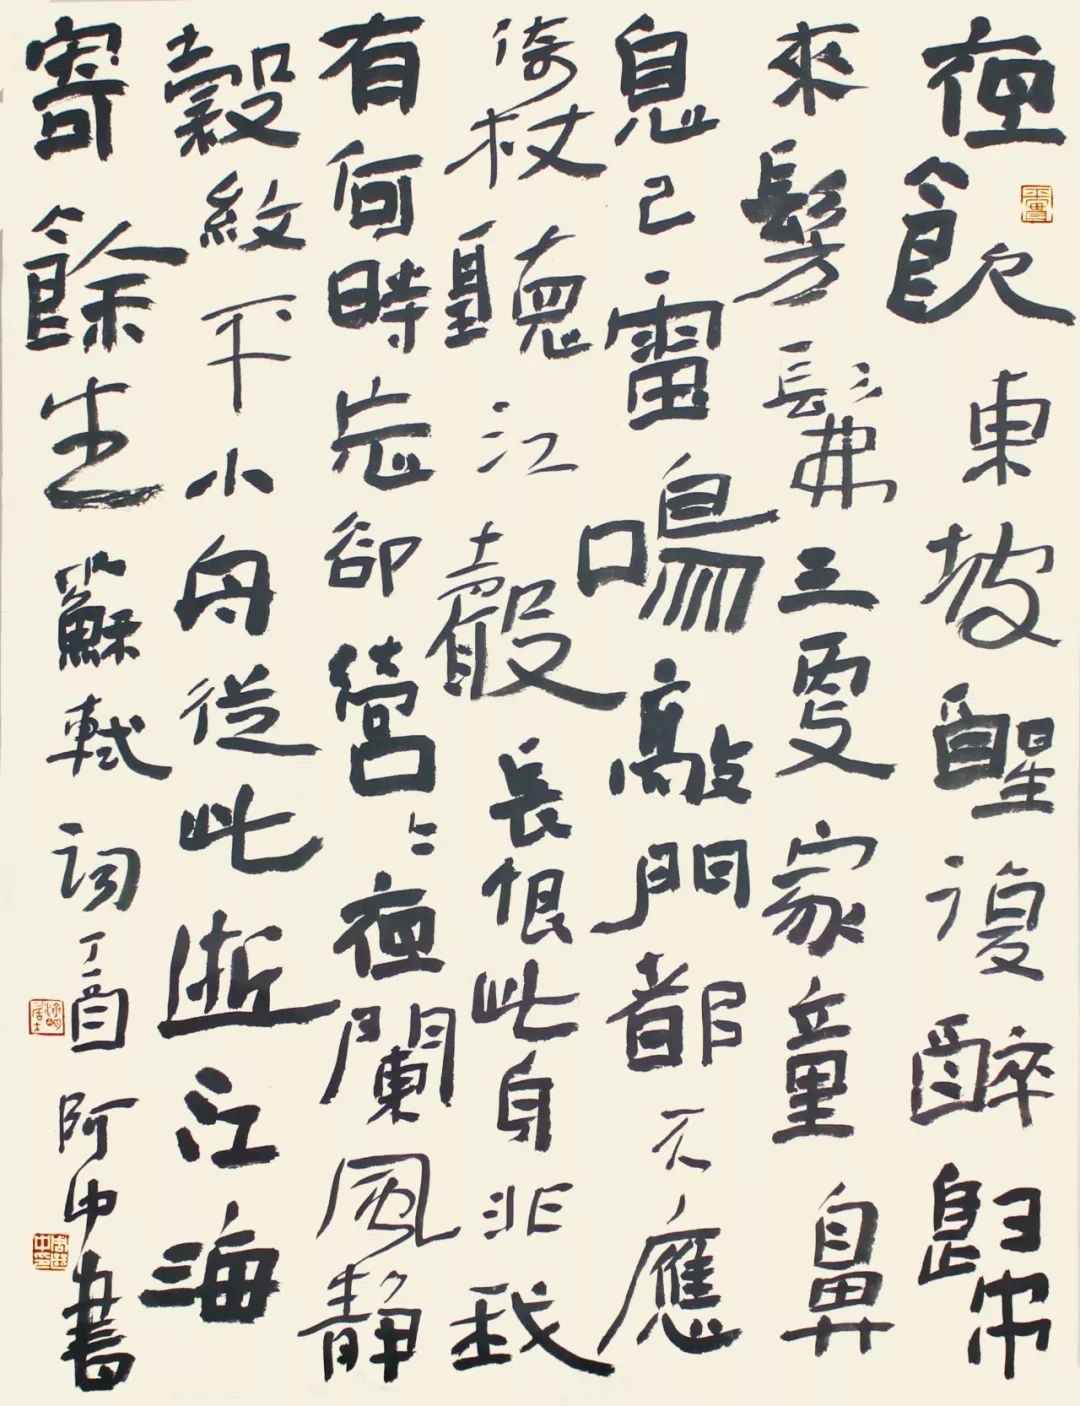 夜飲東坡醒復醉歸
來髣髴三更家童鼻
息已雷鳴敲門都不應
倚杖聽江聲長恨此身非我
有何時忘卻營〻夜闌風静
縠紋平小舟從此逝江海
寄餘生 蘇軾詞丁酉阿中書